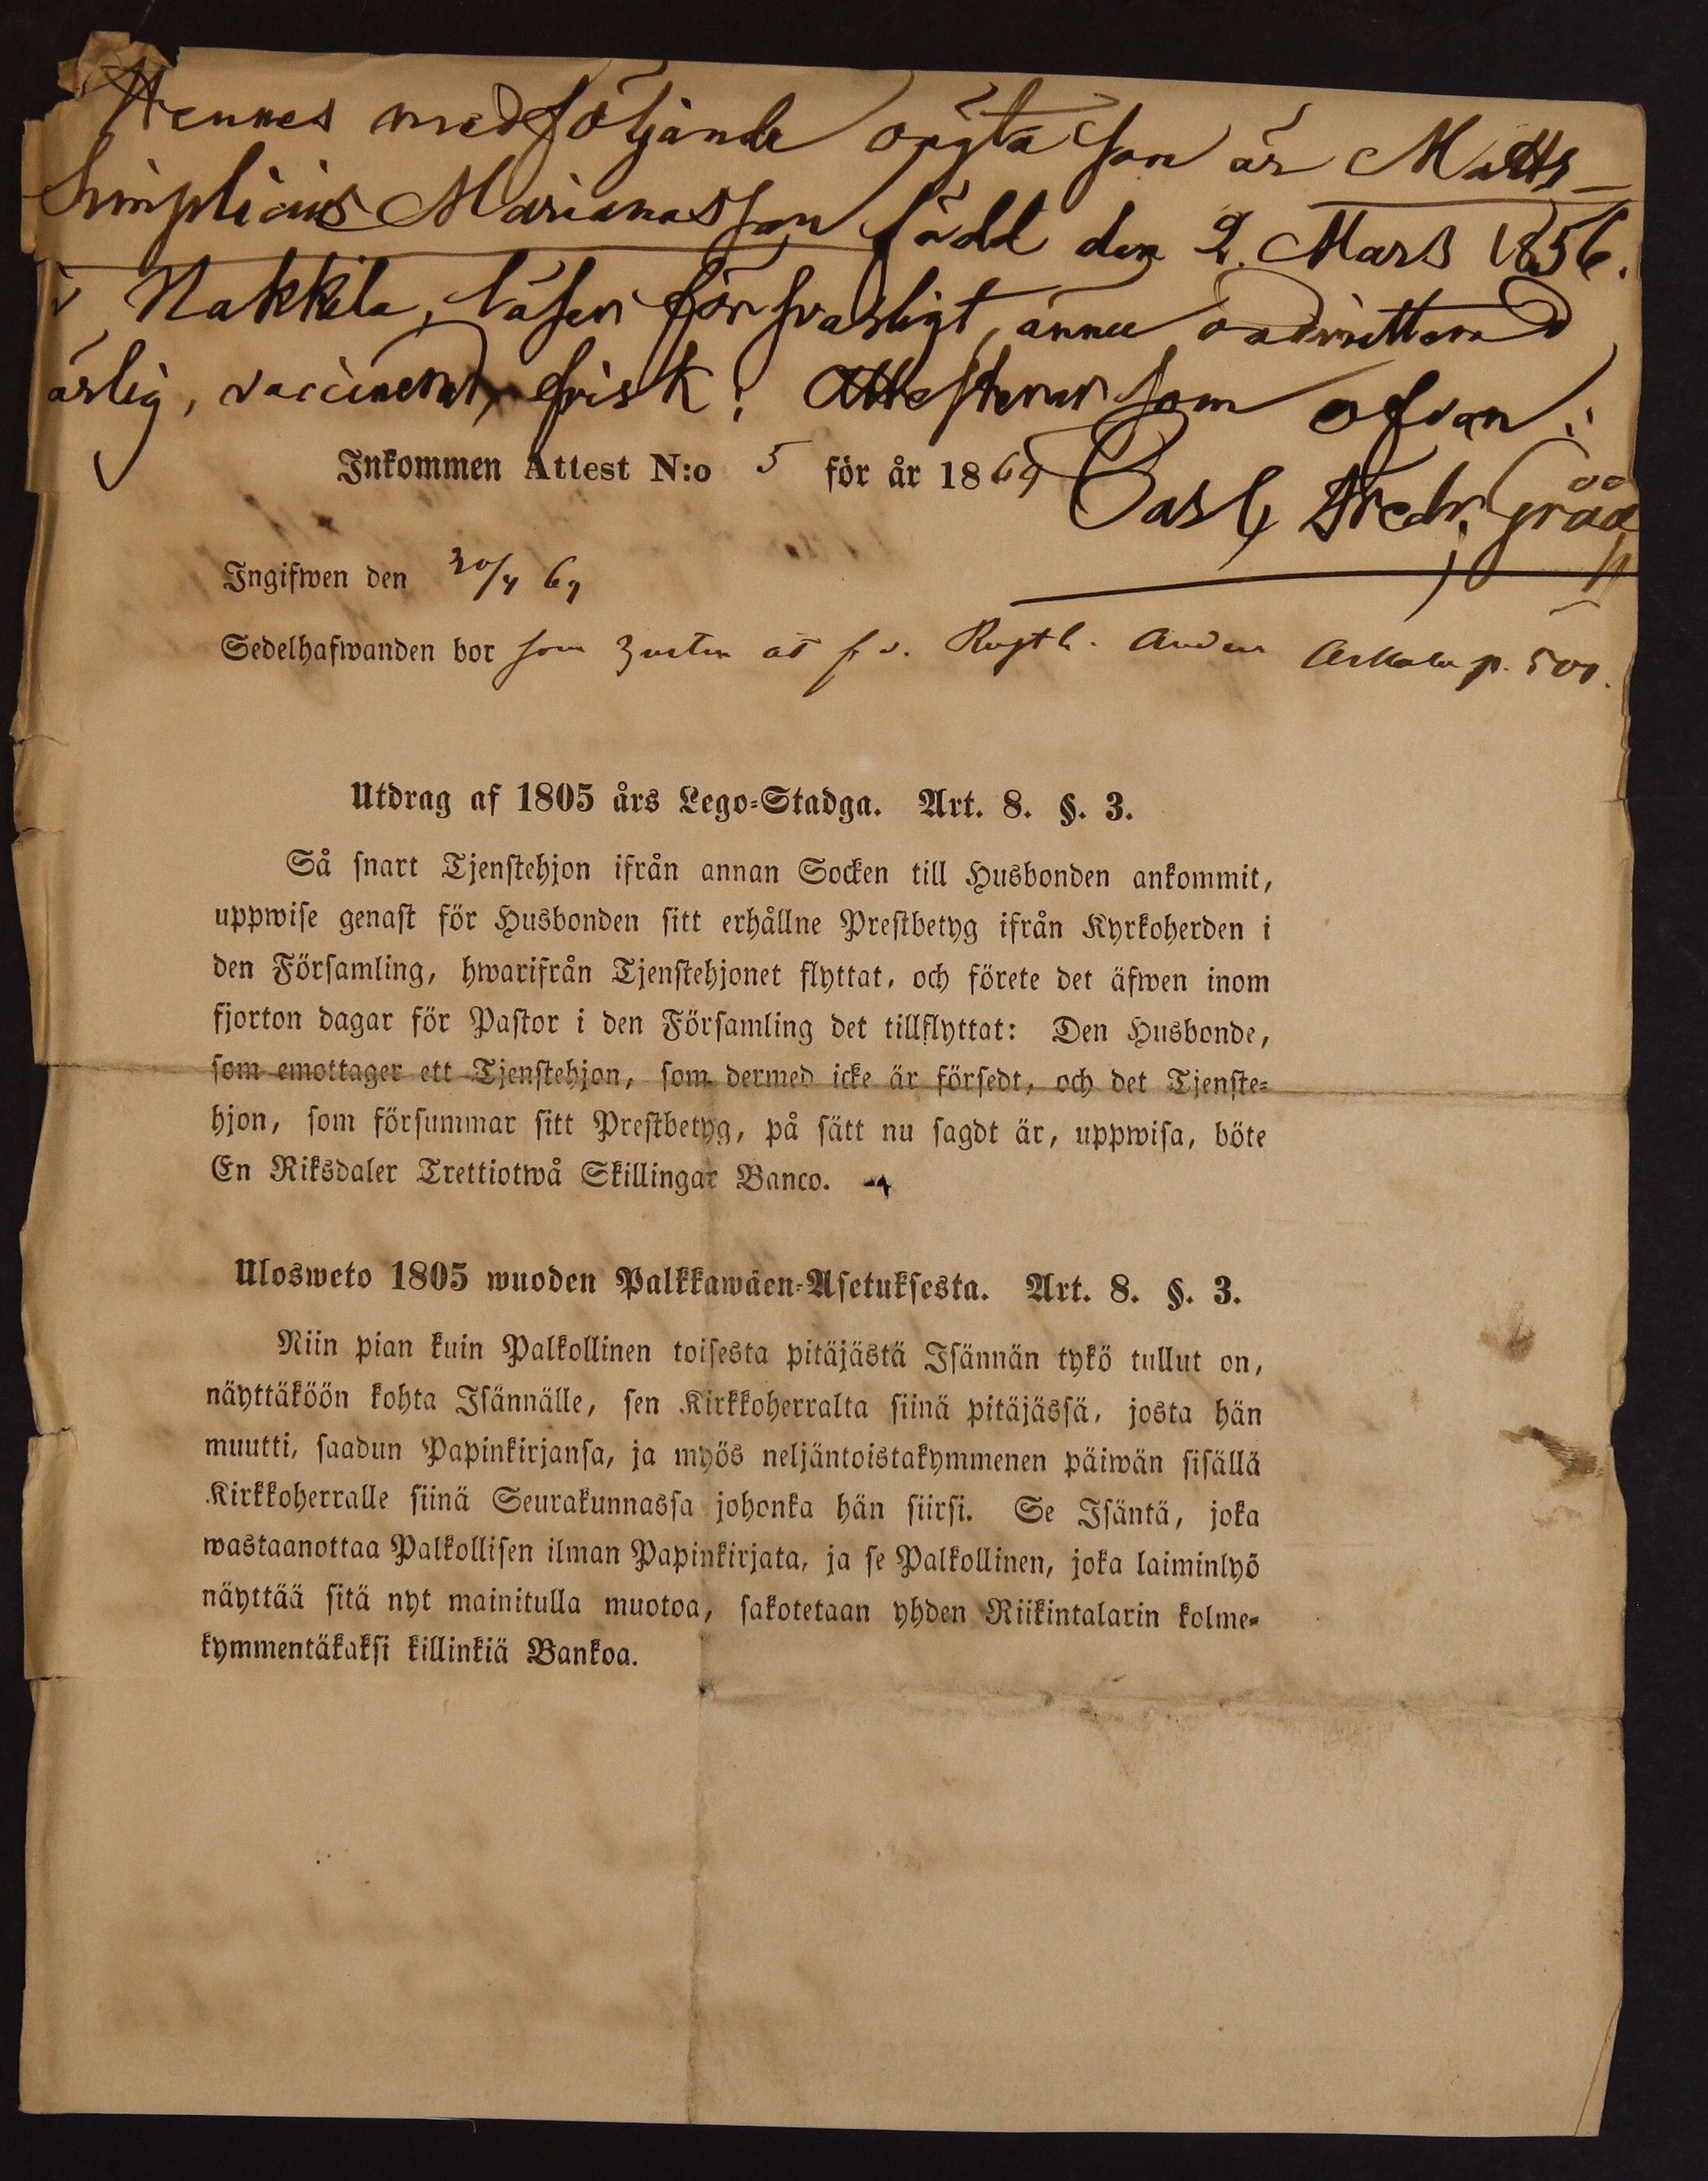 Hennes medföljande oägta son är Matts
Simplicius Marianasson född den 2. Mars 1856.
i Nakkila, läser försvarligt, ännu oadmitterad
ärlig, vaccinerad, frisk; Attesterar som ofvan:
Inkommen Attest N:o 5 för år 1869
Carl Fredr. Grää
Ingifwen den 20/4 69
Sedelhafwanden bor som åt f. d. p. 500.
Utdrag af 1805 års Lego-Stadga. Art. 8. §. 3.
Så snart Tjenstehjon ifrån annan Socken till Husbonden ankommit,
uppwise genast för Husbonden sitt erhållne Prestbetyg ifrån Kyrkoherden i
den Församling, hwarifrån Tjenstehjonet flyttat, och förete det äfwen inom
fjorton dagar för Pastor i den Församling det tillflyttat: Den Husbonde,
som emottager ett Tjenstehjon, som dermed icke är försedt, och det Tjenste-
hjon, som försummar sitt Prestbetyg, på sätt nu sagdt är, uppwisa, böte
En Riksdaler Trettiotwå Skillingar Banco.
Ulosweto 1805 wuoden Palkkawäen-Asetuksesta. Art. 8. §. 3.
Niin pian kuin Palkollinen toisesta pitäjästä Isännän tykö tullut on,
näyttäköön kohta Isännälle, sen Kirkkoherralta siinä pitäjässä, josta hän
muutti, saadun Papinkirjansa, ja myös neljäntoistakymmenen päiwän sisällä
Kirkkoherralle siinä Seurakunnassa johonka hän siirsi. Se Isäntä, joka
wastaanottaa Palkollisen ilman Papinkirjata, ja se Palkollinen, joka laiminlyö
näyttää sitä nyt mainitulla muotoa, sakotetaan yhden Riikintalarin kolme-
kymmentäkaksi killinkiä Bankoa.